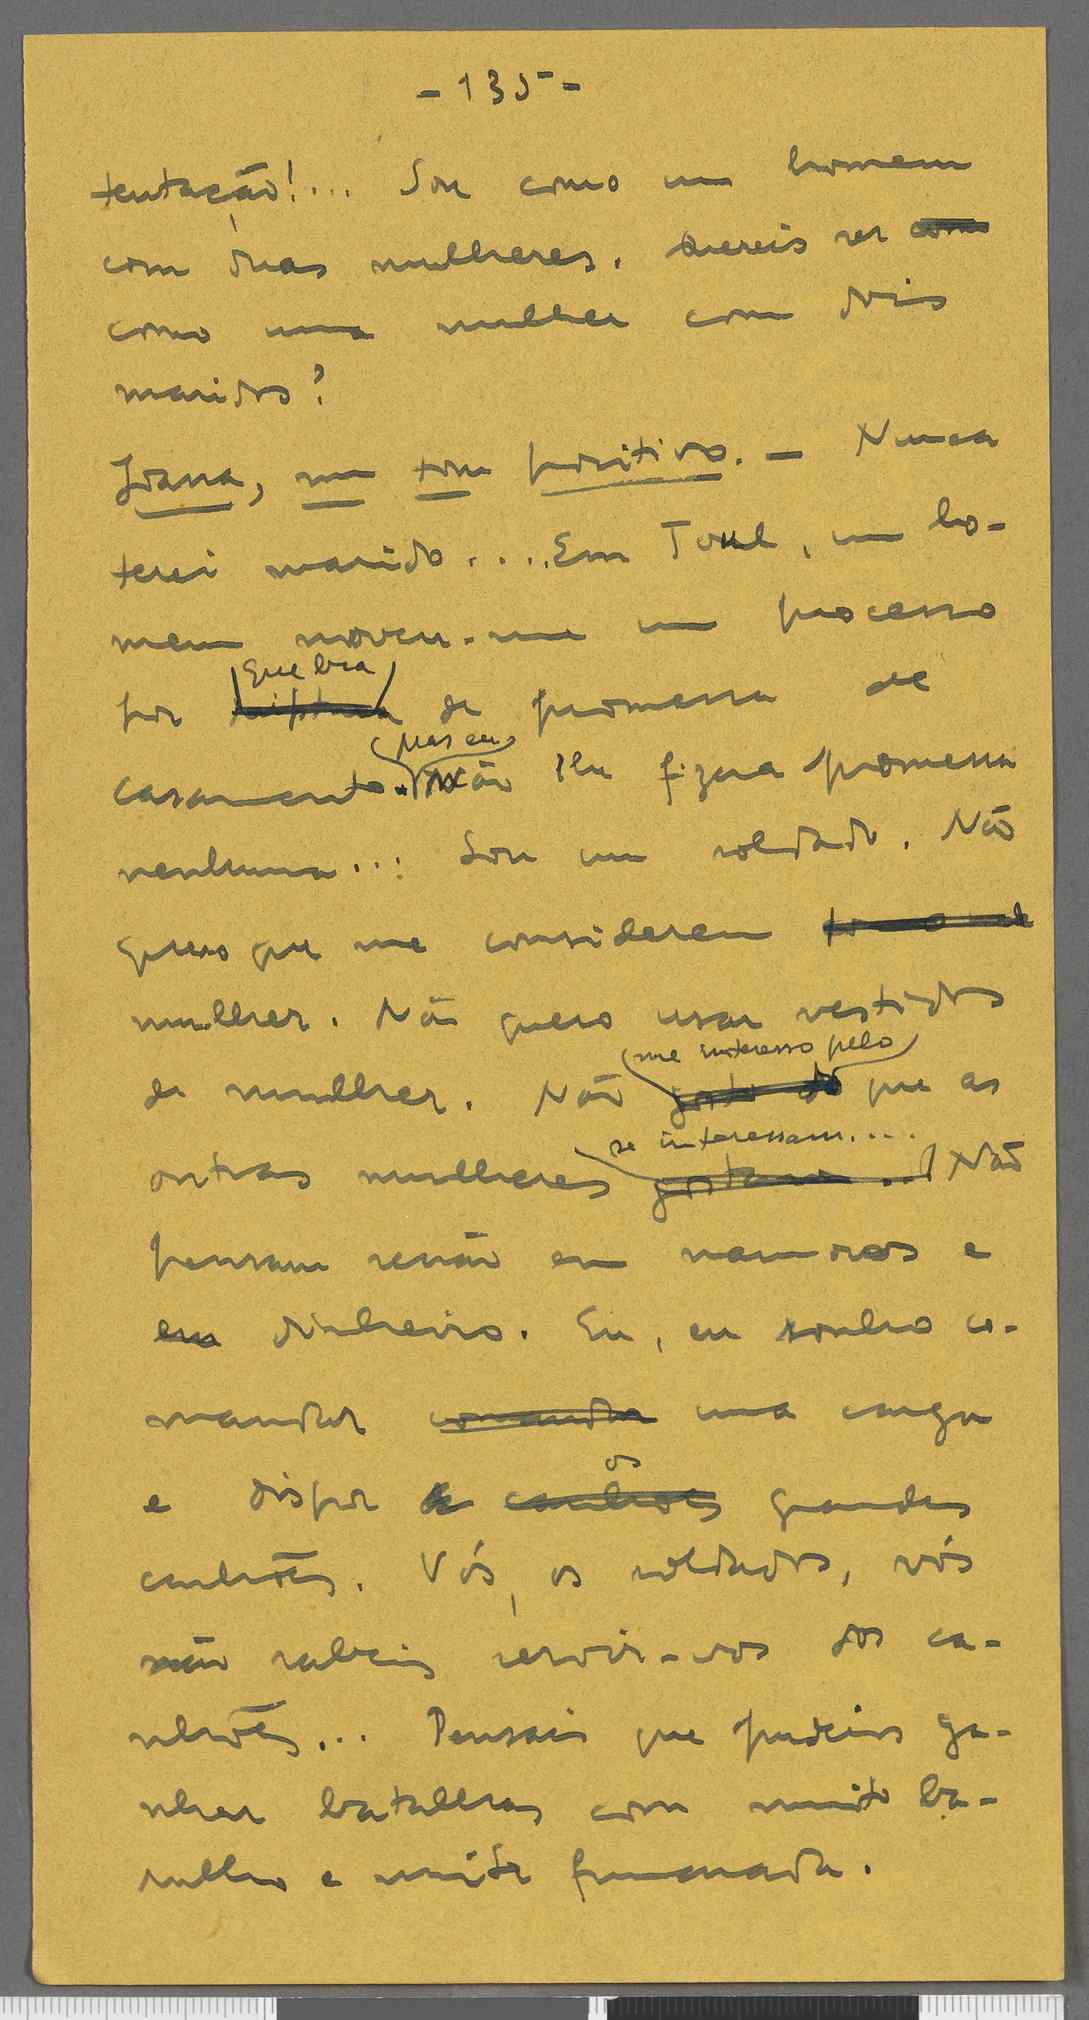 - 135 -
tentação!... Sou como um homem
com duas mulheres. Quereis ser como
como uma mulher com dois
maridos?
Joana, num tom positivo. — Nunca
terei marido.... Em Toul, um ho-
mem moveu-me um processo
quebra
por ruptura de promessa de
Mas eu
casamento. não lhe fizera promessa
nenhuma... Sou um soldado. Não
quero que me considerem
mulher. Não quero usar vestidos
me interesso pelo
de mulher. Não gosto do que as
se interessam....
outras mulheres gostam... Não
pensam senão em namoros e
em dinheiro. Eu, eu sonho co-
mandar comandar uma carga
e dispor
os
canhões grandes
canhões. Vós, os soldados, vós
não sabeis servir-vos dos ca-
nhões... Pensais que podeis ga-
nhar batalhas com muito ba-
rulho e muita fumarada.